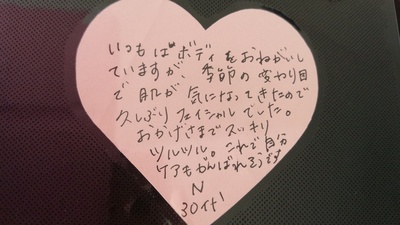 いつもはボディをおねがいし
ていますが、季節の変わり目
で肌が気になってきたので
久しぶりフェイシャルでした。
おかげさまでスッキリ
ツルツル。これで自分
ケアもがんばれそうです
N
30代